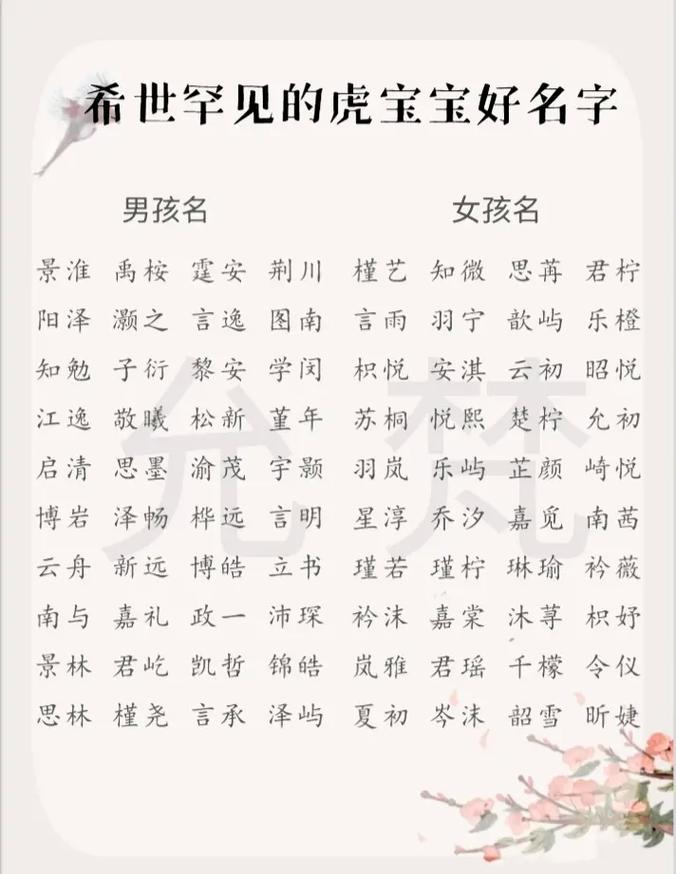 希世罕见的虎宝宝好名字
男孩名 女孩名
景淮 禹桉 霆安 荆川 槿艺 知微 思苒 君柠
阳泽 灏之 言逸 图南 言雨 羽宁 歆屿 乐橙
知勉 子衍 黎安 学闵 枳悦 安淇 云初 昭悦
江逸 敬曦 松新 董年 苏桐 悦熙 楚柠 允初
启清 思墨 渝茂 宇颢 羽岚 乐屿 芷颜 崎悦
博岩 泽畅 桦远 言明 星淳 乔汐 嘉觅 南茜
云舟 新远 博皓 立书 瑾若 瑾柠 琳瑜 衿薇
南与 嘉礼 政一 沛琛 衿沫 嘉棠 沐荨 枳妤
景林 君屹 凯哲 锦皓 岚雅 君瑶 千檬 令仪
思林 槿尧 言承 泽屿 夏初 岑沫 韶雪 昕婕
允梵